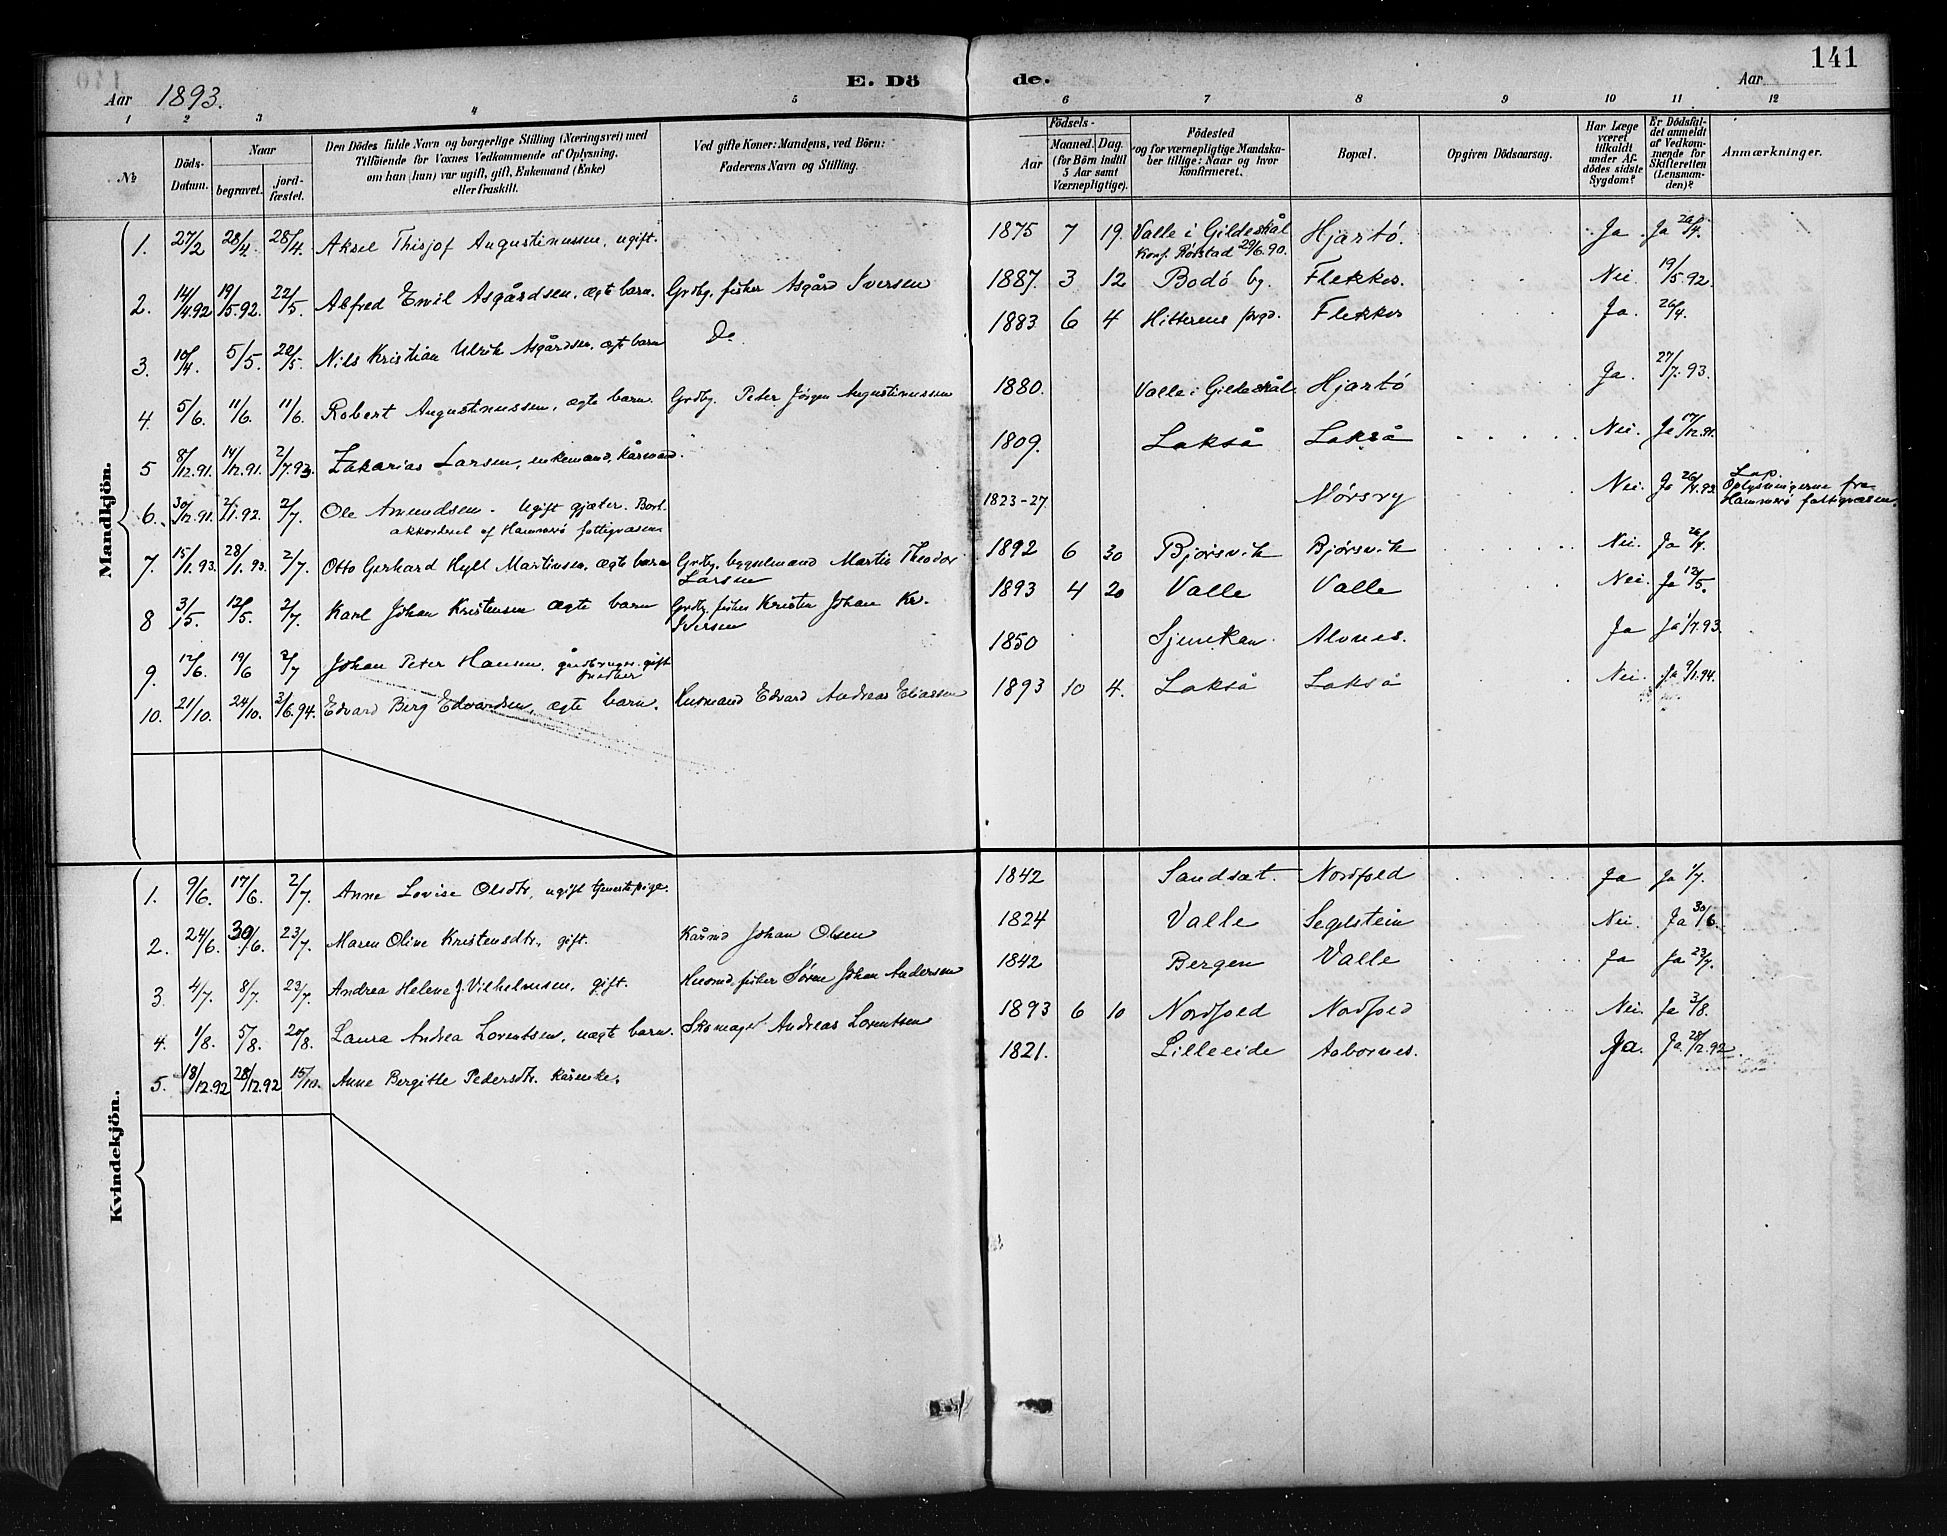 141
E. Dö de.
Aar 1893.
Aar
1 2 3 4 5 6 7 8 9 10 11 12
№
Döds-Datum.
Naar
begravet.
jord-fæstet.
Den Dödes fulde Navn og borgerlige Stilling (Næringsvei) med
Tilföiende for Voxnes Vedkommende af Oplysning,
om han (hun) var ugift, gift, Enkemand (Enke)
eller fraskilt.
Ved gifte Koner: Mandens, ved Börn:
Faderens Navn og Stilling.
Födsels-
Aar
Maaned. Dag.
(for Börn indtil
5 Aar samt
Værnepligtige).
Födested
og for værnepligtige Mandska-
ber tillige: Naar og hvor
konfirmeret.
Bopæl.
Opgiven Dödsaarsag.
Har Læge
været
tilkaldt
under Af-
dödes sidste
Sygdom?
Er Dödsfal-
det anmeldt
af Vedkom-
mende for
Skifteretten
(Lensman-
den)?
Anmærkninger.
Mandkjön.
1. 27/2 28/4. 28/4. Aksel Thisjof Augustinussen, ugift. 1875 7 19. Valle i Gildeskål Hjartö. Ja Ja 26/4.
Konf. Rörstad 29/6.90.
2. 14/4.92 19/5.92. 22/5. Alfred Emil Asgårdsen, ægte barn. Grdbg. fisker Asgård Iversen 1887. 3 12 Bodö by. Flekkes. Nei. 19/5.92.
3. 10/4. 5/5. 20/5. Nils Kristian Ulrik Asgårdsen, ægte barn Do 1883 6 4 Hitterens prgd. Flekkes Ja. 26/4.
4. 5/6. 11/6. 11/6. Robert Augustnussen, ægte barn. Grdbg. Peter Jörgen Augustinussen 1880. Valle i Gildeskål Hjartö Ja. 27/7.93.
5 8/12.91. 14/12.91. 2/7.93. Zakarias Larsen, enkemand, kårmand. 1809. Lakså Lakså Nei. Ja 17/12.91.
6. 30/12.91. 2/1.92. 2/7. Ole Amundsen. Ugift gjæter. Bort- 1823-27. Mörsry Nei. Ja 26/4.93. Lap.
akkorderet af Hammerö fattigvæsen Oplysningerne fra
Hammerö fattigvæsen.
7. 15/1.93. 28/1.93. 2/7. Otto Gerhard Hyll Martinsen, ægte barn Grdbg. bygselmand Martin Theodor 1892 6 30 Björsvik Björsvik Nei. Ja 26/4.
Larsen
8 3/5. 12/5. 2/7. Karl Johan Kristensen ægte barn Grdbg. fisker Kristen Johan Kr. 1893 4 20 Valle Valle Nei. Ja 12/5.
Iversen
9. 12/6. 19/6 2/7 Johan Peter Hansen, gårdbruger. gift 1850 Sjunkan. Alvnes. Ja Ja 1/7.93.
10. 21/10. 24/10. 3/6.94. Edvard Berg Edvardsen, ægte barn. Husmand Edvard Andreas Eliassen 1893 10 4. Lakså Lakså Nei. Ja 9/1.94.
Kvindekjön.
1. 9/6. 17/6. 2/7. Anne Lovise Olsdtr, ugift tjenestepige. 1842 Sandsæt. Nordfold Ja Ja 1/7.
2. 24/6. 30/6. 23/7. Maren Oline Kristensdtr, gift. Kårmd Johan Olsen 1824 Valle Segelstein Nei. Ja 30/6.
3. 4/7. 8/7. 23/7. Andrea Helene J. Vilhelmsen, gift. Husmd. fisker Sören Johan Andersen 1842 Bergen Valle Ja Ja 23/7.
4. 1/8. 5/8. 20/8. Laura Andrea Lorentsen, uægte barn. Skomager Andreas Lorentsen 1893 6 10 Nordfold Nordfold Nei. Ja 3/8.
5. 18/12.92 28/12.92 15/10. Anne Bergitte Pedersdtr. kårenke. 1821. Lilleeide Aabornes. Ja. Ja 28/12.92